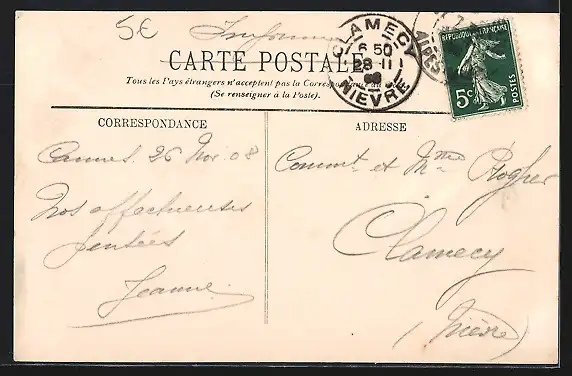 5€
CARTE POSTALE
Tous les Pays étrangers n'acceptent pas la Correspondance au
(Se renseigner à la Poste).
CLAMECY
6 50
28 11
08
NIEVRE
REPUBLIQUE FRANÇAISE
5c
POSTES
CORRESPONDANCE
Cannes. 26 Nov. 08
Nos affectueuses
pensées
Jeanne.
ADRESSE
Commt et Mme
Clamecy
(Nièvre)